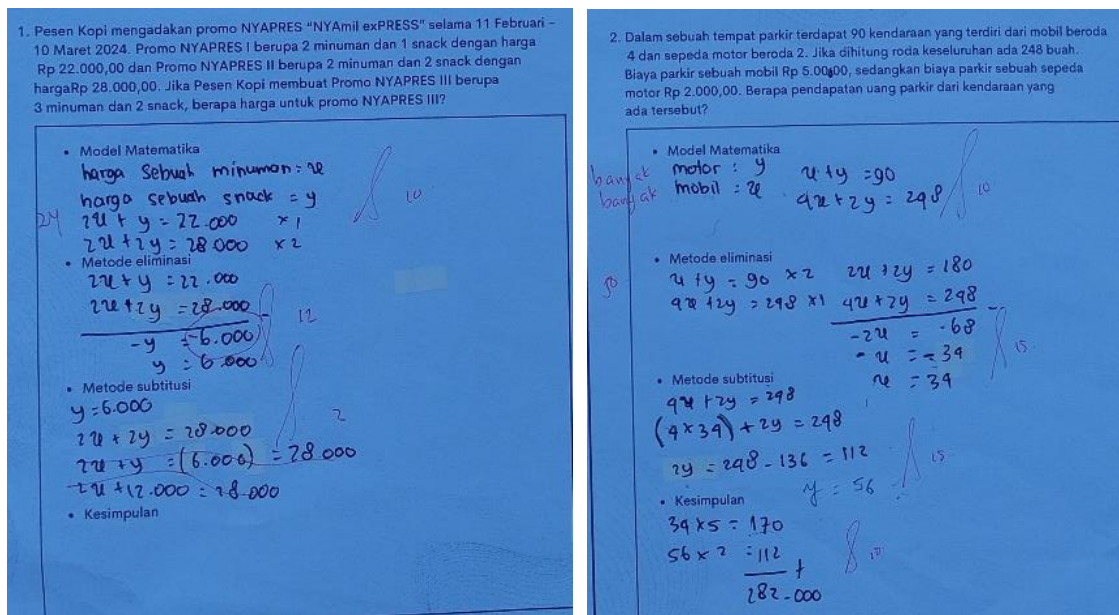 1. Pesen Kopi mengadakan promo NYAPRES "NYAmil exPRESS" selama 11 Februari -
10 Maret 2024. Promo NYAPRES I berupa 2 minuman dan 1 snack dengan harga
Rp 22.000,00 dan Promo NYAPRES II berupa 2 minuman dan 2 snack dengan
hargaRp 28.000,00. Jika Pesen Kopi membuat Promo NYAPRES III berupa
3 minuman dan 2 snack, berapa harga untuk promo NYAPRES III?
• Model Matematika
harga sebuah minuman = x
harga sebuah snack = y
10
24
2x + y = 22.000 x 1
2x + 2y = 28.000 x 2
• Metode eliminasi
2x + y = 22.000
2x + 2y = 28.000 -
12
-y = -6.000
y = 6.000
• Metode subtitusi
y = 6.000
2
2x + 2y = 28.000
2x + y = (6.000) = 28.000
2x + 12.000 = 28.000
• Kesimpulan
2. Dalam sebuah tempat parkir terdapat 90 kendaraan yang terdiri dari mobil beroda
4 dan sepeda motor beroda 2. Jika dihitung roda keseluruhan ada 248 buah.
Biaya parkir sebuah mobil Rp 5.000,00, sedangkan biaya parkir sebuah sepeda
motor Rp 2.000,00. Berapa pendapatan uang parkir dari kendaraan yang
ada tersebut?
• Model Matematika
banyak motor : y x + y = 90
banyak mobil : x 4x + 2y = 248
10
• Metode eliminasi
50
x + y = 90 x 2 2x + 2y = 180
4x + 2y = 248 x 1 4x + 2y = 248 -
-2x = -68
-x = -34
15
x = 34
• Metode subtitusi
4x + 2y = 248
(4 x 34) + 2y = 248
2y = 248 - 136 = 112
15
y = 56
• Kesimpulan
34 x 5 = 170
56 x 2 = 112 +
10
282.000